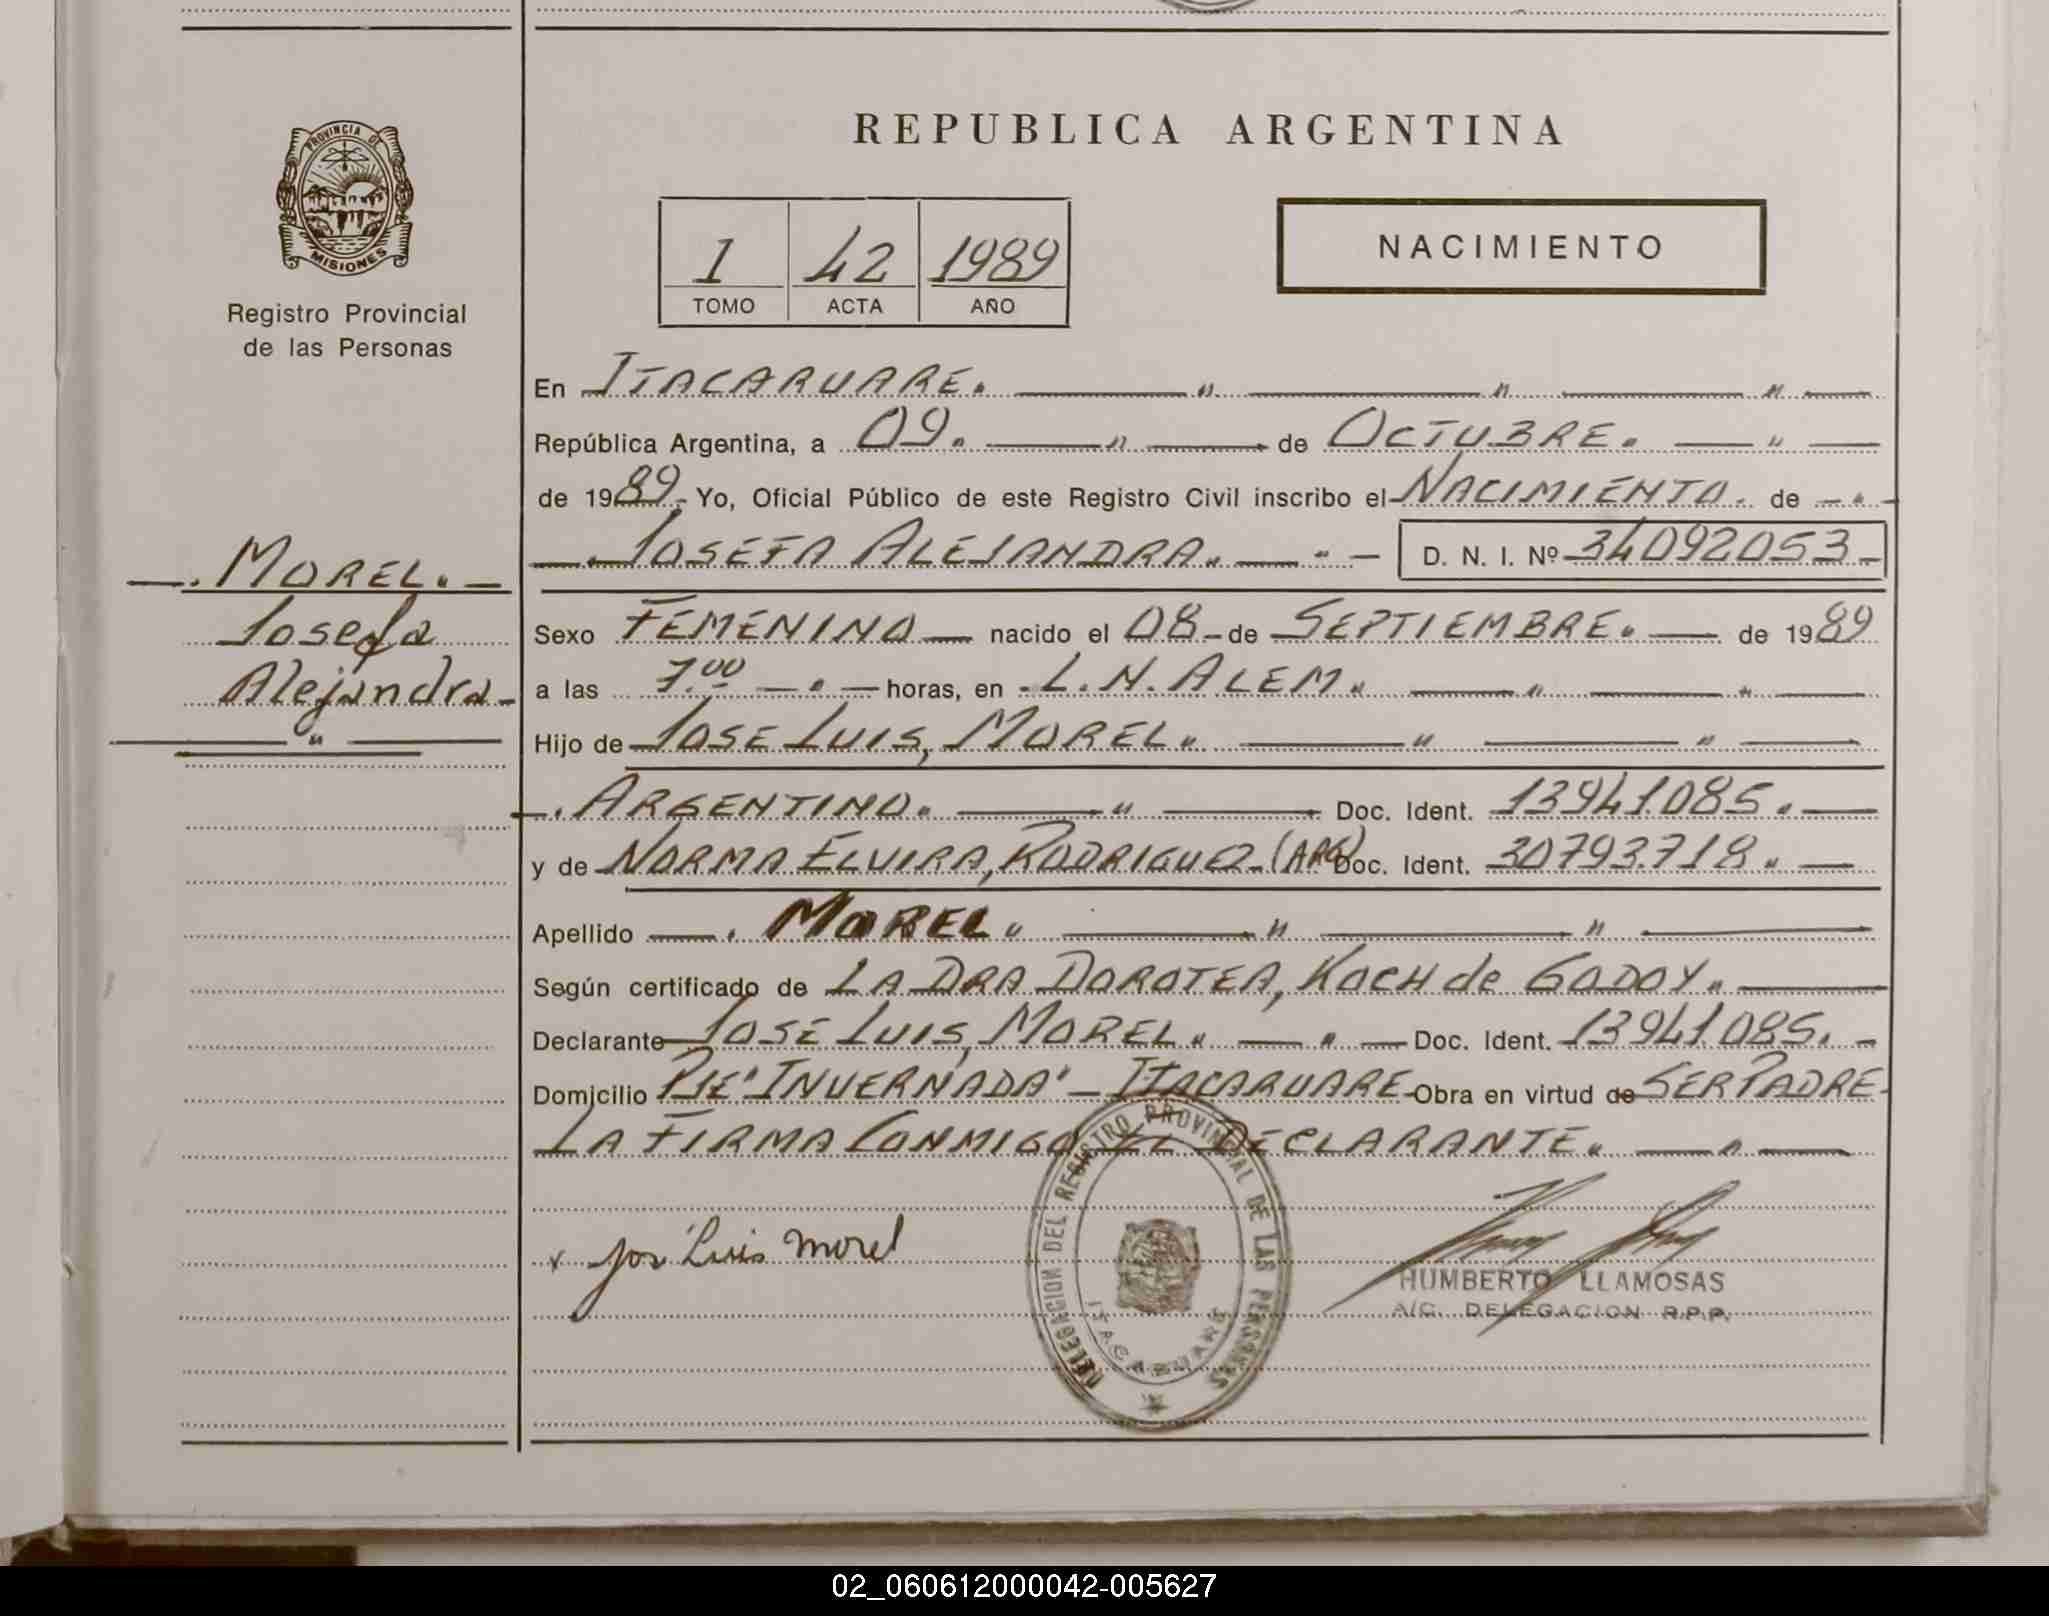 PROVINCIA DE
MISIONES
Registro Provincial
de las Personas
MOREL.
Josefa
Alejandra
REPUBLICA ARGENTINA
1 42 1989
TOMO ACTA AÑO
NACIMIENTO
En ITACARUARE.
República Argentina, a 09. de OCTUBRE.
de 1989.- Yo, Oficial Público de este Registro Civil inscribo el NACIMIENTO. de
JOSEFA ALEJANDRA. D. N. I. Nº 34092053
Sexo FEMENINO nacido el 08 de SEPTIEMBRE. de 1989
a las 7.00 horas, en L. N. ALEM.
Hijo de JOSE LUIS, MOREL.
ARGENTINO. Doc. Ident. 13941.085.
y de NORMA ELVIRA, RODRIGUEZ (ARG) Doc. Ident. 30793.718.
Apellido MOREL
Según certificado de LA DRA DOROTEA, KOCH de GODOY.
Declarante JOSÉ LUIS, MOREL. Doc. Ident. 13941.085.
Domicilio PJE "INVERNADA" - ITACARUARE - Obra en virtud de SER PADRE
LA FIRMA CONMIGO EL DECLARANTE.
DELEGACION DEL REGISTRO PROVINCIAL DE LAS PERSONAS
ITACARUARE
x jos Luis morel
HUMBERTO LLAMOSAS
A/C. DELEGACION R.P.P.
02_060612000042-005627